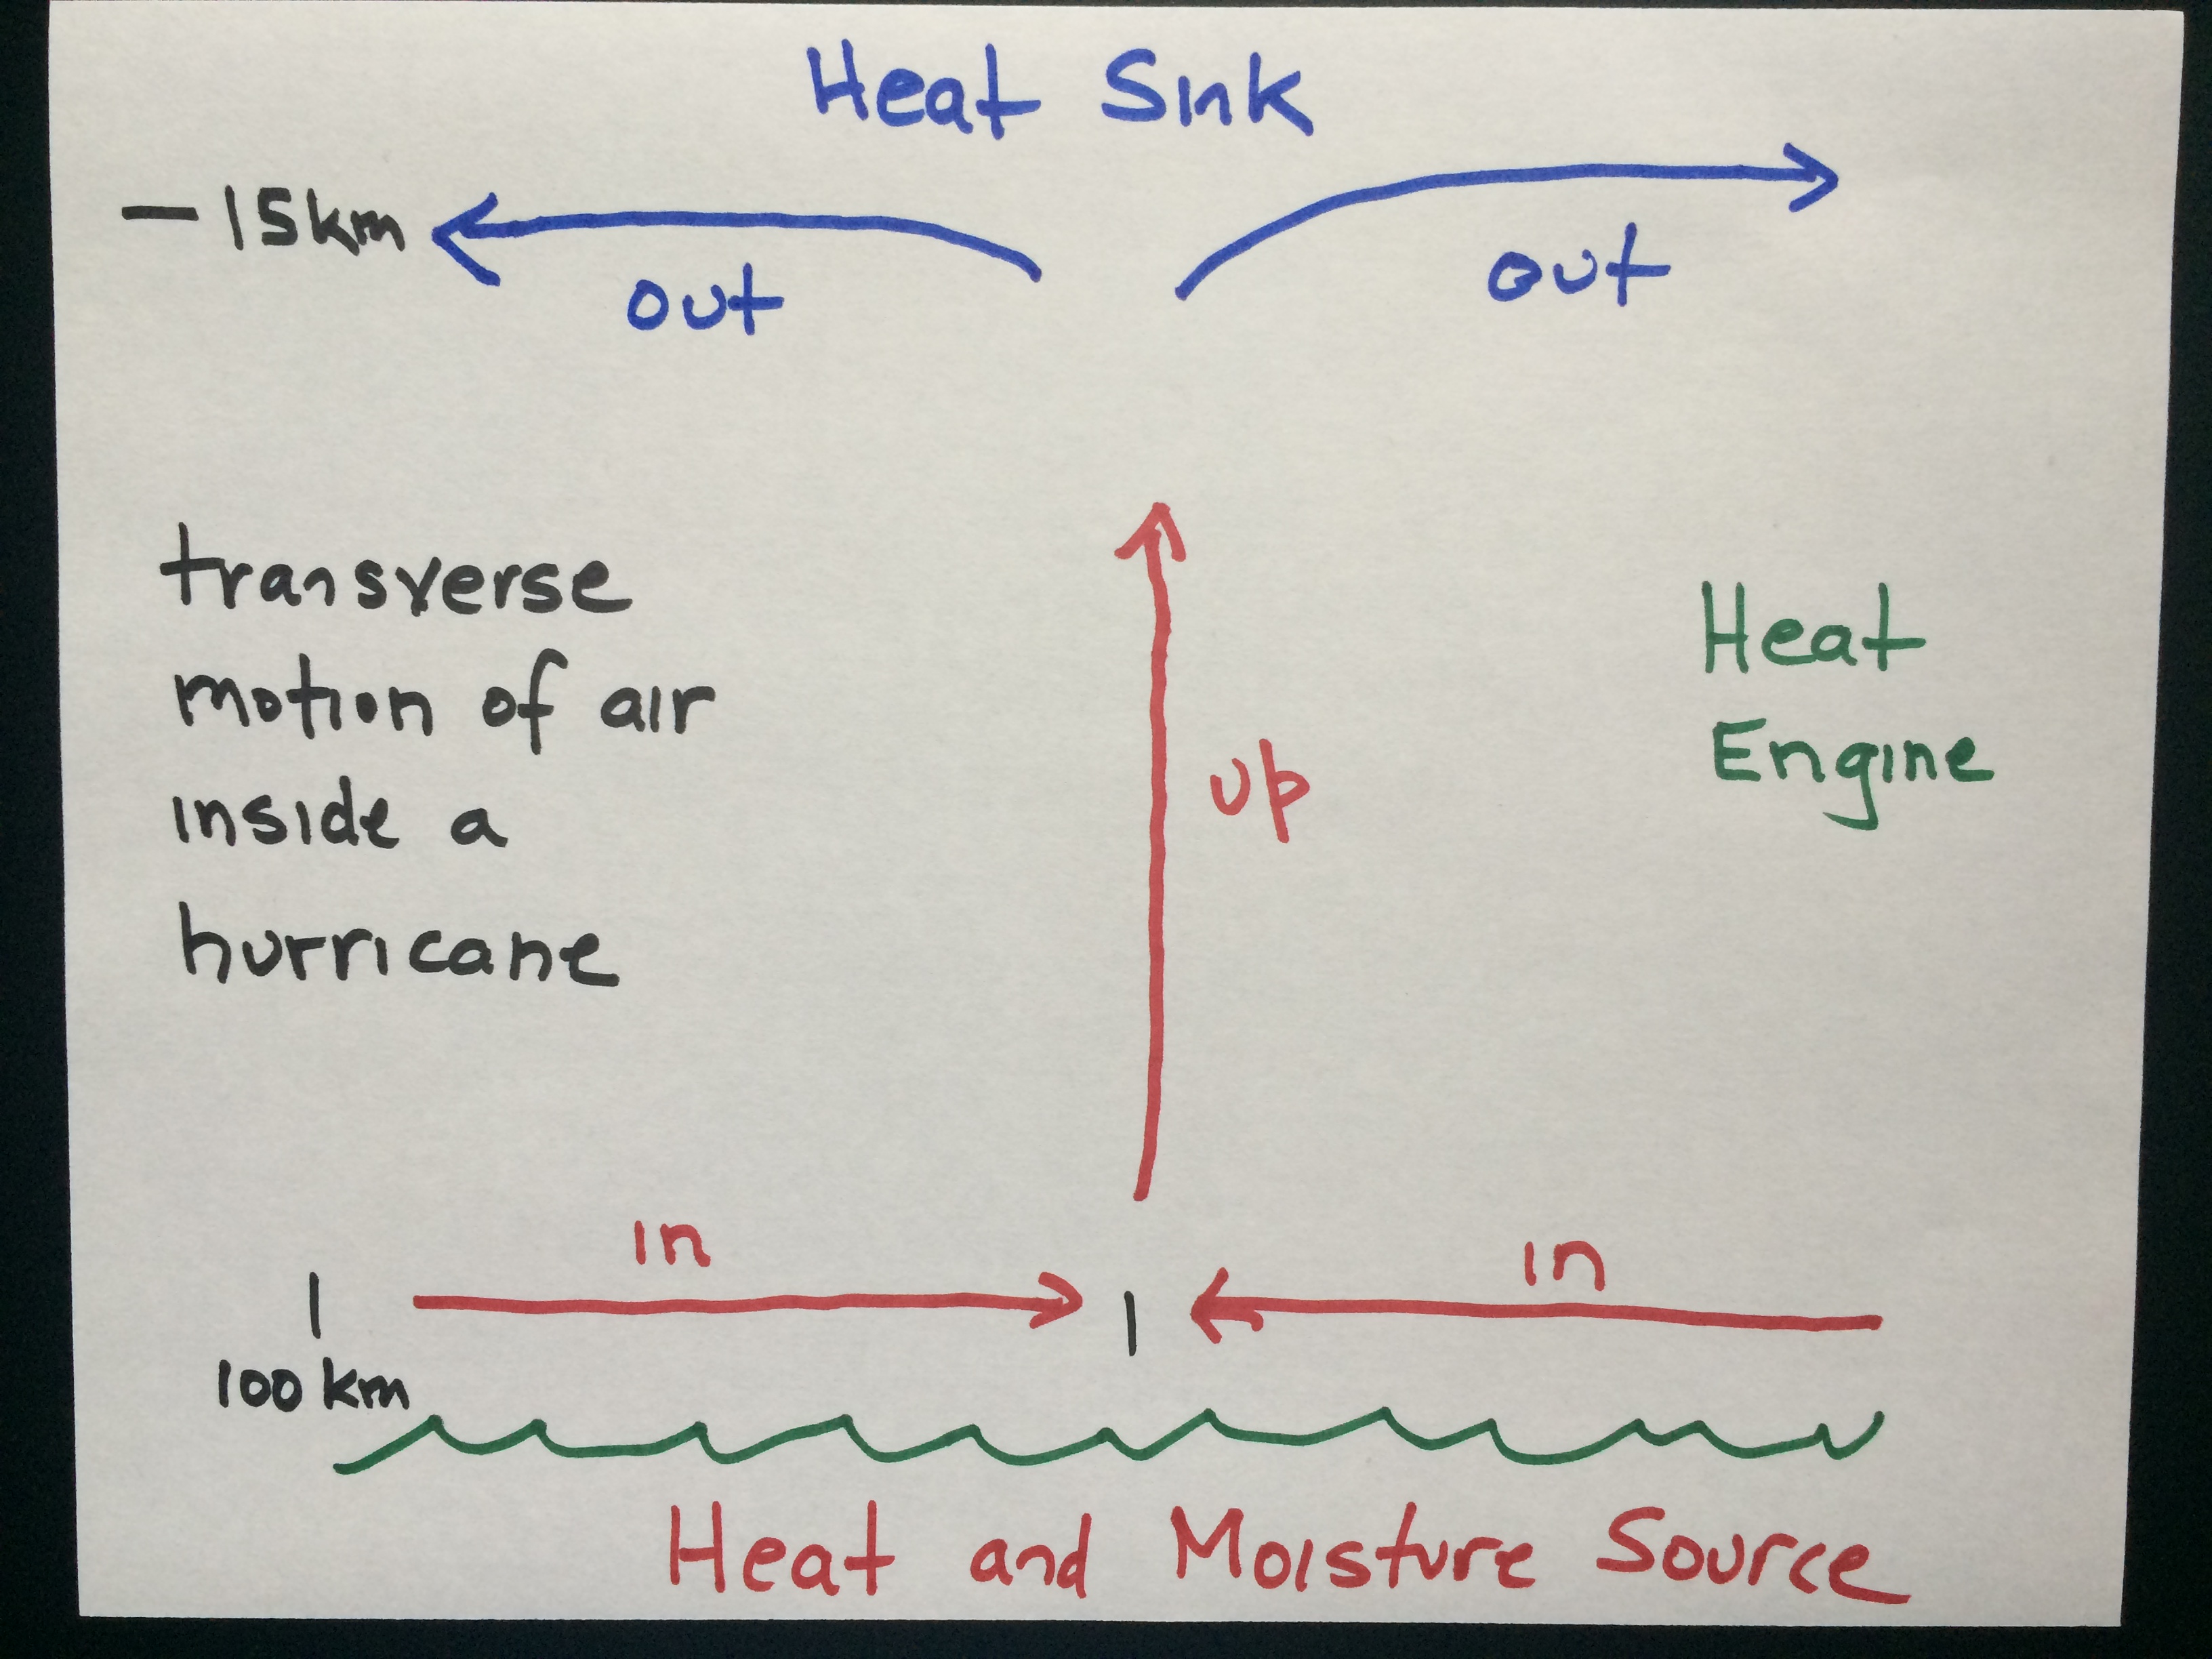 Heat Sink
— 15km
out
out
transverse
motion of air
inside a
hurricane
up
Heat
Engine
in
in
100 km
Heat and Moisture Source